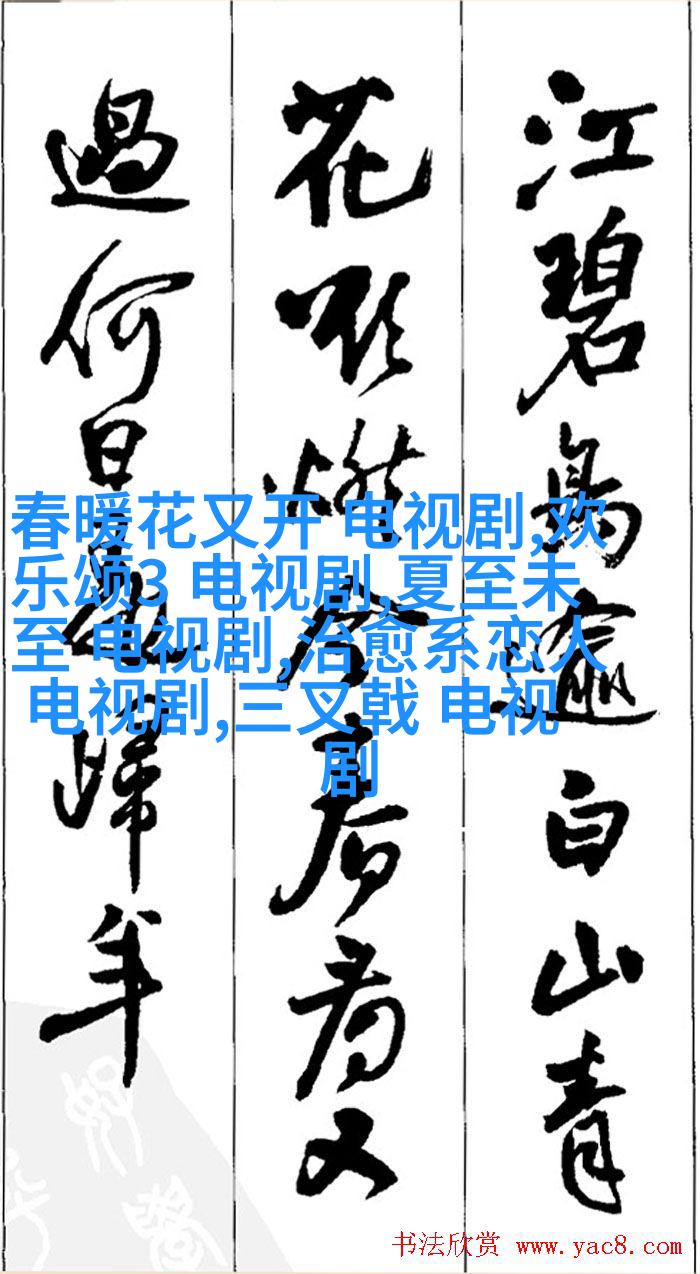 江碧鳥逾白山青
花欲燃今春看又
過何日是歸年
春暖花又开 电视剧,欢
乐颂3 电视剧,夏至未
至 电视剧,治愈系恋人
电视剧,三叉戟 电视
剧
书法欣赏 www.yac8.com